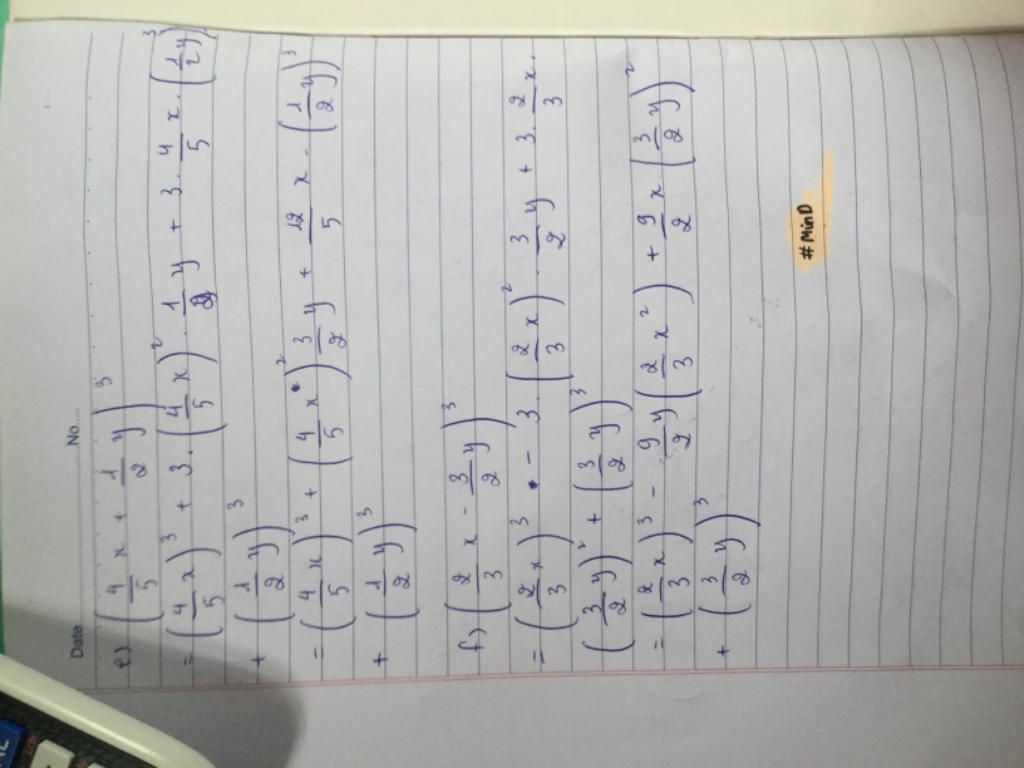 Date No.
e) (4/5 x + 1/2 y)³
= (4/5 x)³ + 3. (4/5 x)². 1/2 y + 3. 4/5 x. (1/2 y)³
+ (1/2 y)³
= (4/5 x)³ + (4/5 x)² 3/2 y + 12/5 x - (1/2 y)³
+ (1/2 y)³
f) (2/3 x - 3/2 y)³
= (2/3 x)³ - 3. (2/3 x)². 3/2 y + 3. 2/3 x.
(3/2 y)² + (3/2 y)³
= (2/3 x)³ - 9/2 y (2/3 x²) + 9/2 x (3/2 y)²
+ (3/2 y)³
#MinD